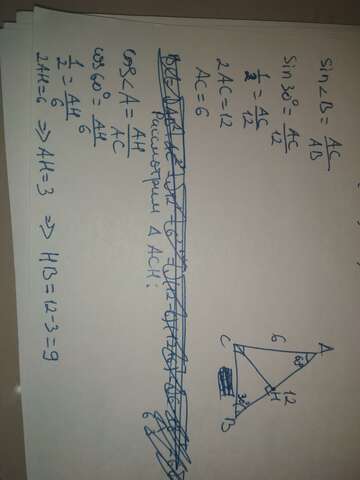 sin∠B = AC/AB
sin30° = AC/12
1/2 = AC/12
2AC = 12
AC = 6
Рассмотрим Δ ACH:
cos∠A = AH/AC
cos60° = AH/6
1/2 = AH/6
2AH = 6 ⇒ AH = 3 ⇒ HB = 12 - 3 = 9
A
60°
6
12
H
C
30°
B